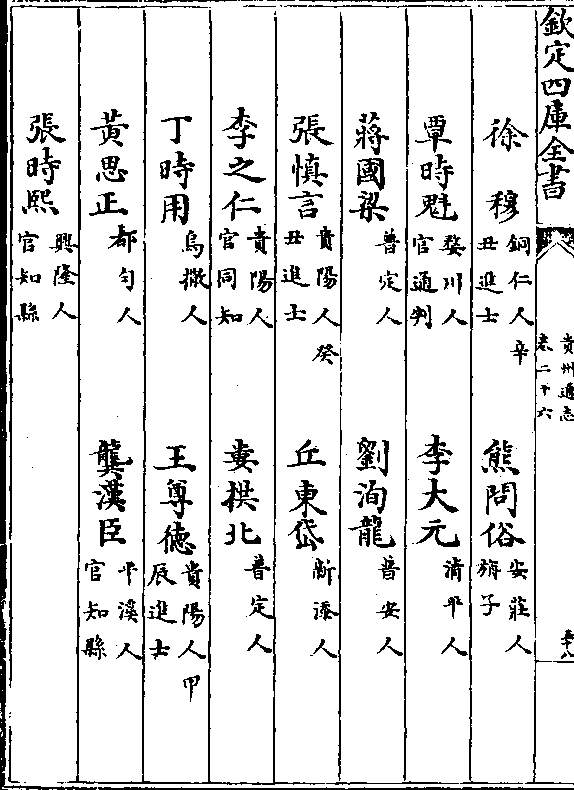 欽定四庫全書
貴州通志
卷二十六
五十八
徐穆 銅仁人辛丑進士 熊問俗 安莊人旃子
覃時魁 婺川人官通判 李大元 清平人
蔣國梁 普定人 劉洵龍 普安人
張慎言 貴陽人癸丑進士 丘東岱 新添人
李之仁 貴陽人官同知 婁拱北 普定人
丁時用 烏撒人 王尊德 貴陽人甲辰進士
黃思正 都勻人 龔漢臣 平溪人官知縣
張時熙 興隆人官知縣